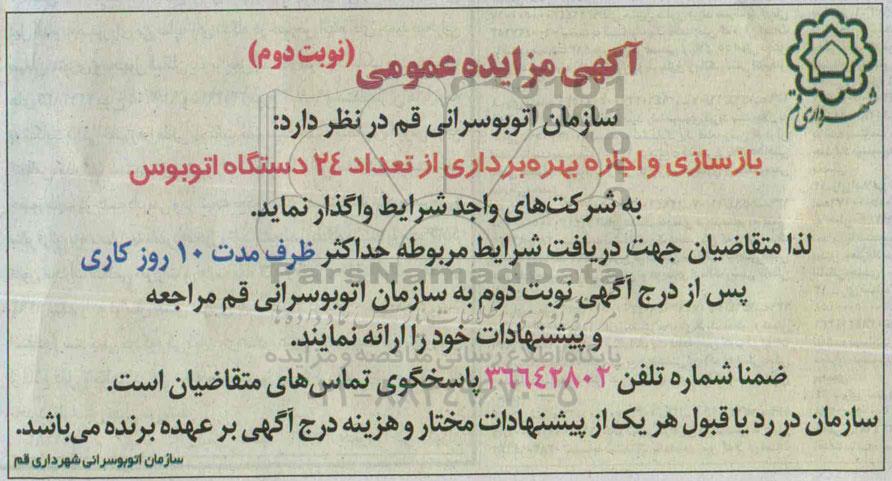 آگهی مزایده عمومی (نوبت دوم)
شهرداری قم
سازمان اتوبوسرانی قم در نظر دارد:
بازسازی و اجاره بهره‌برداری از تعداد ۲۴ دستگاه اتوبوس
به شرکت‌های واجد شرایط واگذار نماید.
لذا متقاضیان جهت دریافت شرایط مربوطه حداکثر ظرف مدت ۱۰ روز کاری
ParsNamadData
پس از درج آگهی نوبت دوم به سازمان اتوبوسرانی قم مراجعه
و پیشنهادات خود را ارائه نمایند.
پایگاه اطلاع رسانی مناقصه و مزایده
ضمنا شماره تلفن ۳۶۶۴۲۸۰۲ پاسخگوی تماس‌های متقاضیان است.
۰۲۱-۸۸۳۴۹۶۷۰-۵
سازمان در رد یا قبول هر یک از پیشنهادات مختار و هزینه درج آگهی بر عهده برنده می‌باشد.
سازمان اتوبوسرانی شهرداری قم